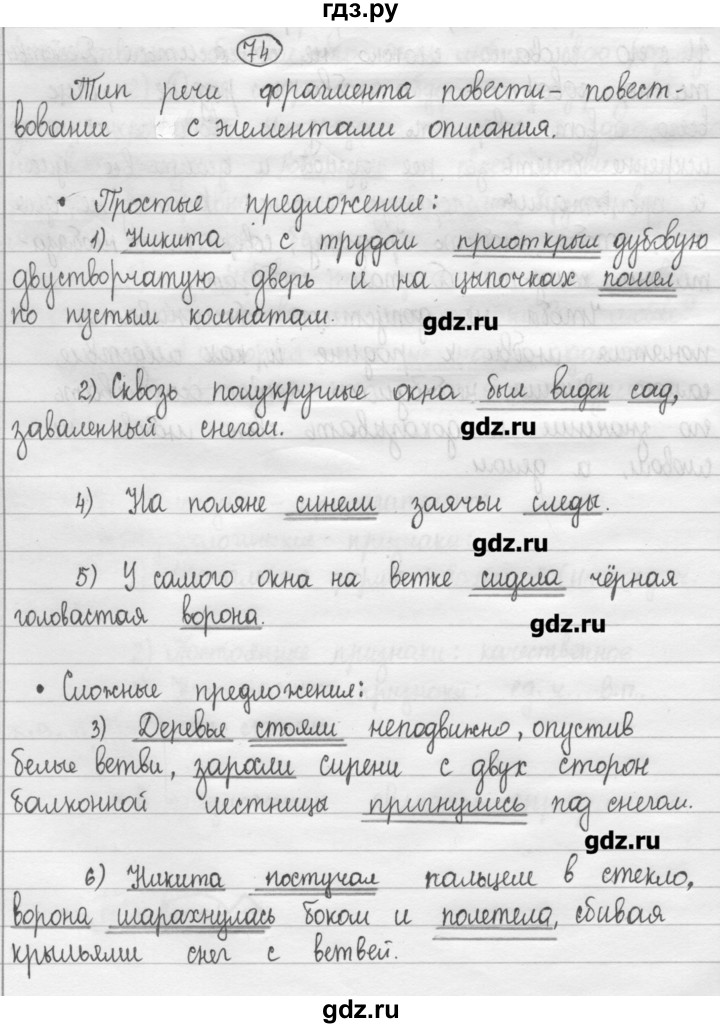 гдз.ру
74
Тип речи фрагмента повести – повест-
вование с элементами описания.
• Простые предложения:
1) Никита с трудом приоткрыл дубовую
двустворчатую дверь и на цыпочках пошёл
по пустым комнатам.
gdz.ru
2) Сквозь полукруглые окна был виден сад,
заваленный снегом.
gdz.ru
4) На поляне синели заячьи следы.
gdz.ru
5) У самого окна на ветке сидела чёрная
головастая ворона.
gdz.ru
• Сложные предложения:
3) Деревья стояли неподвижно, опустив
белые ветви, заросли сирени с двух сторон
балконной лестницы пригнулись под снегом.
gdz.ru
6) Никита постучал пальцем в стекло,
ворона шарахнулась боком и полетела, сбивая
крыльями снег с ветвей.
gdz.ru